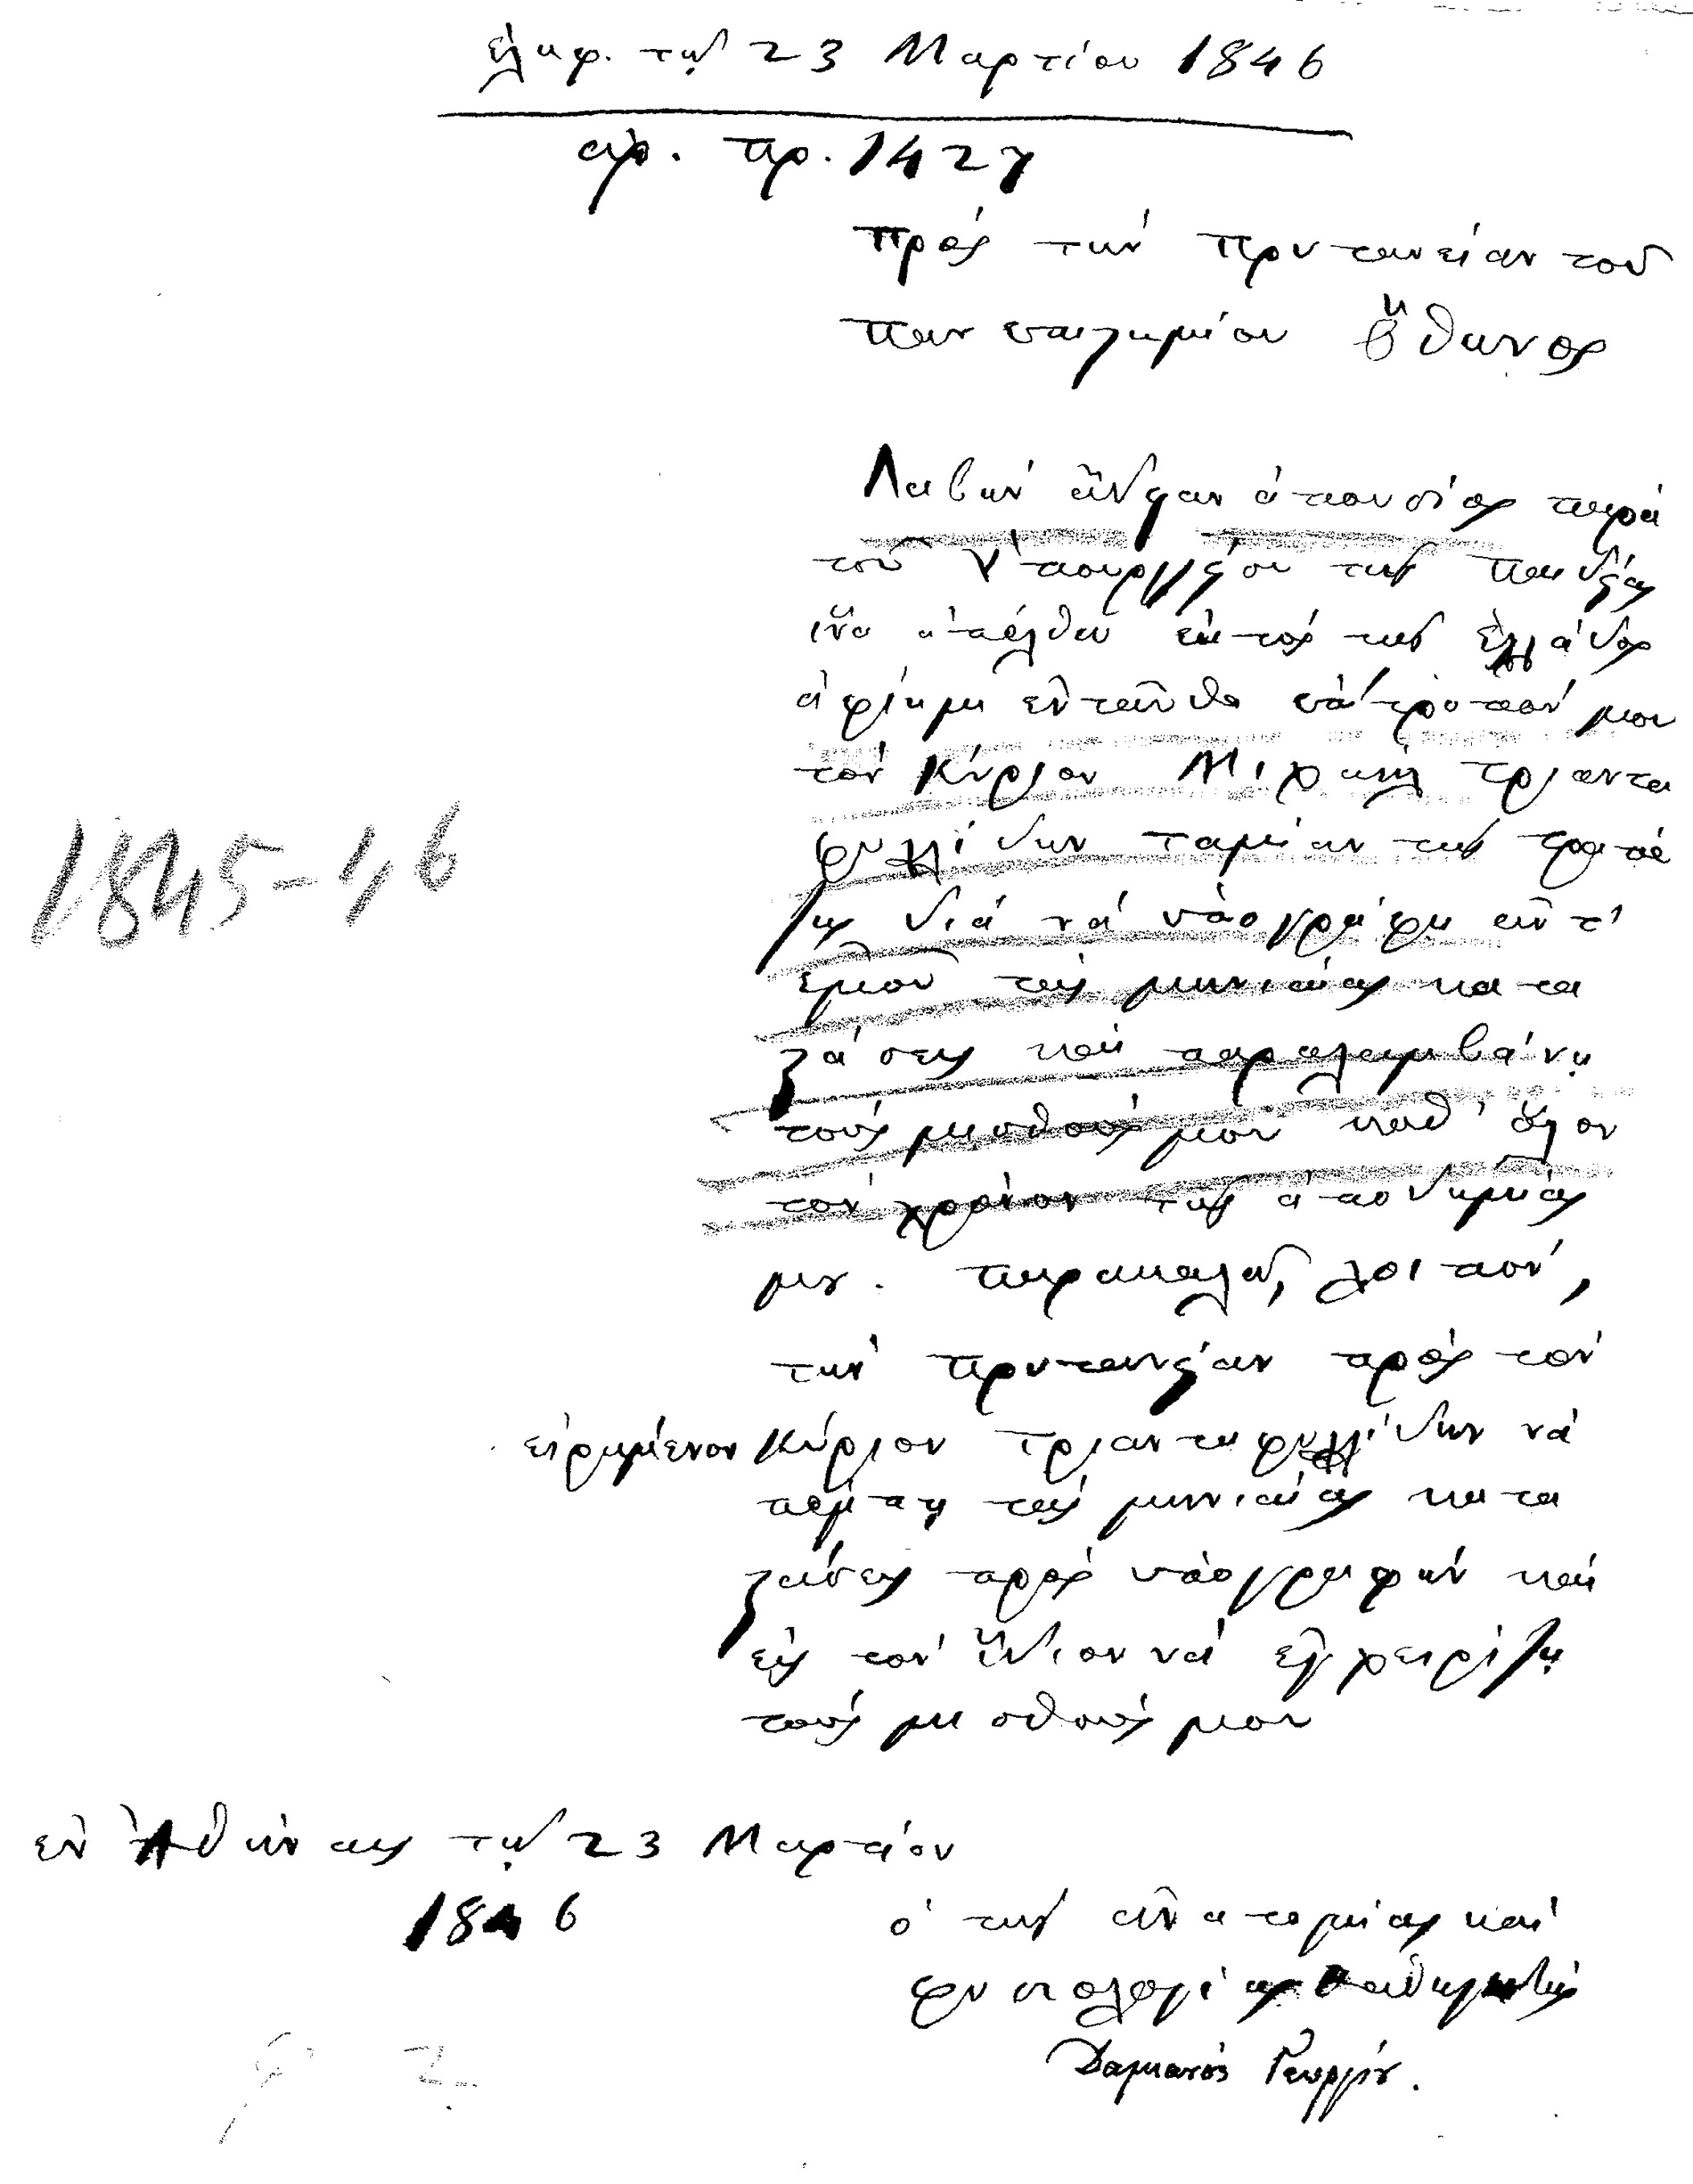 ἐλήφ. τῇ 23 Μαρτίου 1846
ἀρ. πρ. 1427
Πρὸς τὴν Πρυτανείαν τοῦ
Πανεπιστημίου Ὄθωνος
Λαβὼν ἄδειαν ἀπουσίας παρὰ
τοῦ Ὑπουργείου τῆς Παιδείας
ἵνα ἀπέλθω ἐκτὸς τῆς Ἑλλάδος
ἀφίημι ἐνταῦθα ἐπίτροπόν μου
τὸν Κύριον Μιχαὴλ Τριαντα
φυλλίδην ταμίαν τῆς τραπέ
ζης διὰ νὰ ὑπογράφῃ ἀντ'
ἐμοῦ τὰς μηνιαίας κατα
στάσεις καὶ παραλαμβάνῃ
τοὺς μισθούς μου καθ' ὅλον
τὸν χρόνον τῆς ἀποδημίας
μου. Παρακαλῶ, λοιπόν,
τὴν Πρυτανείαν πρὸς τὸν
εἰρημένον Κύριον Τριανταφυλλίδην νὰ
πέμπῃ τὰς μηνιαίας κατα
στάσεις πρὸς ὑπογραφὴν καὶ
εἰς τὸν ἴδιον νὰ ἐγχειρίζῃ
τοὺς μισθούς μου
ἐν Ἀθήναις τῇ 23 Μαρτίου
1846
ὁ τῆς ἀνατομίας καὶ
φυσιολογίας καθηγητὴς
Δαμιανὸς Γεωργίου.
1845-46